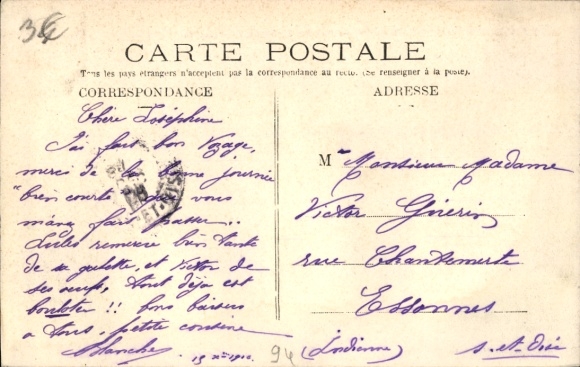 CARTE POSTALE
Tous les pays étrangers n'acceptent pas la correspondance au recto. (Se renseigner à la poste).
CORRESPONDANCE
Chère Joséphine
J'ai fait bon voyage,
merci de la bonne journée
bien courte que vous
m'avez fait passer..
Jules remercie bien tante
de sa galette, et Victor de
ses œufs, tout déjà est
boulotter !! bons baisers
a tous, petite cousine
Blanche 15 Xbre 1910.
ADRESSE
M Monsieur Madame
Victor Guérin
rue Chantemerle
Essonnes
94 (Essonne) S.-et-Oise